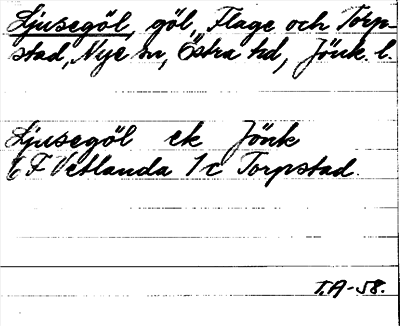 Ljusegöl, göl, Flage och Torp-
stad, Nye sn, Östra hd, Jönk. l.
Ljusegöl ek Jönk
6 F Vetlanda 1 c Torpstad.
T.A-58.